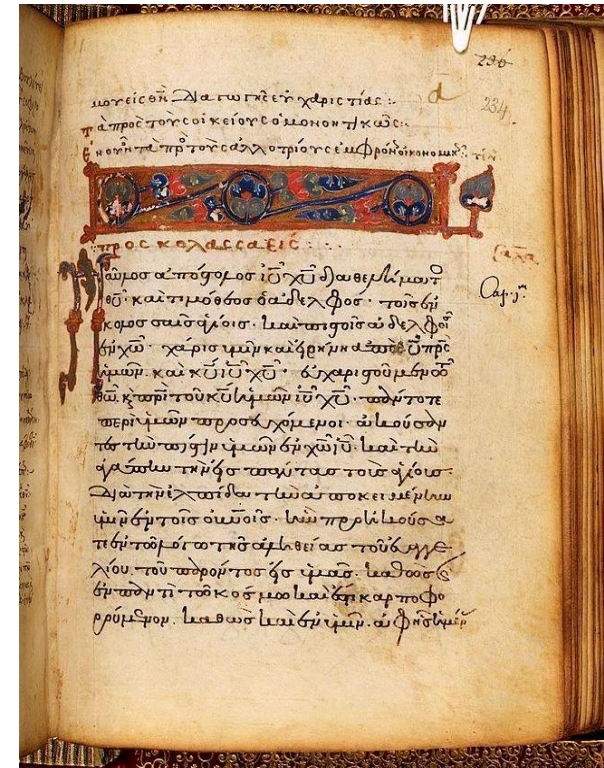 236
μου εἰσθῆ. Διαγωγῆς εὐχαριστίας :
α
234
Τὰ πρὸς τοὺς οἰκείους ὁμονοητικῶς :
τὰ πρὸς τοὺς ἀλλοτρίους ἐμφρόν
πρὸς κολασσαεῖς :
Παῦλος ἀπόστολος ιυ χυ διὰ θελήματος
θυ. καὶ τιμόθεος ὁ ἀδελφός. τοῖς ἐν
κολοσσαῖς ἁγίοις. καὶ πιστοῖς ἀδελφοῖ
Cap. 1.
ἐν χω. χάρις ὑμῖν καὶ εἰρήνη ἀπὸ θυ προς
ἡμῶν. καὶ κυ ιυ χυ. εὐχαριστοῦμεν τῶ
θω κ πρι τοῦ κυ ἡμῶν ιυ χυ. πάντοτε
περὶ ὑμῶν προσευχόμενοι. ἀκούσαν
τες τὴν πίστιν ὑμῶν ἐν χω ιυ. καὶ τὴν
ἀγάπην τὴν εἰς πάντας τοὺς ἁγίους.
Διὰ τὴν ἐλπίδα τὴν ἀποκειμένην
ὑμῖν ἐν τοῖς ουνοις. ἣν προηκούσα
τε ἐν τῶ λόγω τῆς ἀληθείας τοῦ εὐαγγε
λίου. τοῦ παρόντος εἰς ὑμᾶς. καθὼς
ἐν παντὶ τῶ κόσμω καὶ ἔστι καρποφο
ρούμενον. καθὼς καὶ ἐν ὑμῖν. ἀφ' ἧς ἡμέρ